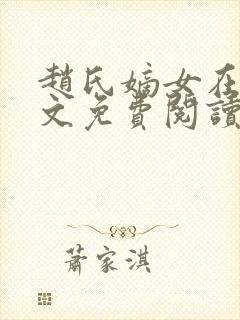 趙氏嫡女在
文免費閱讀
蕭家淇